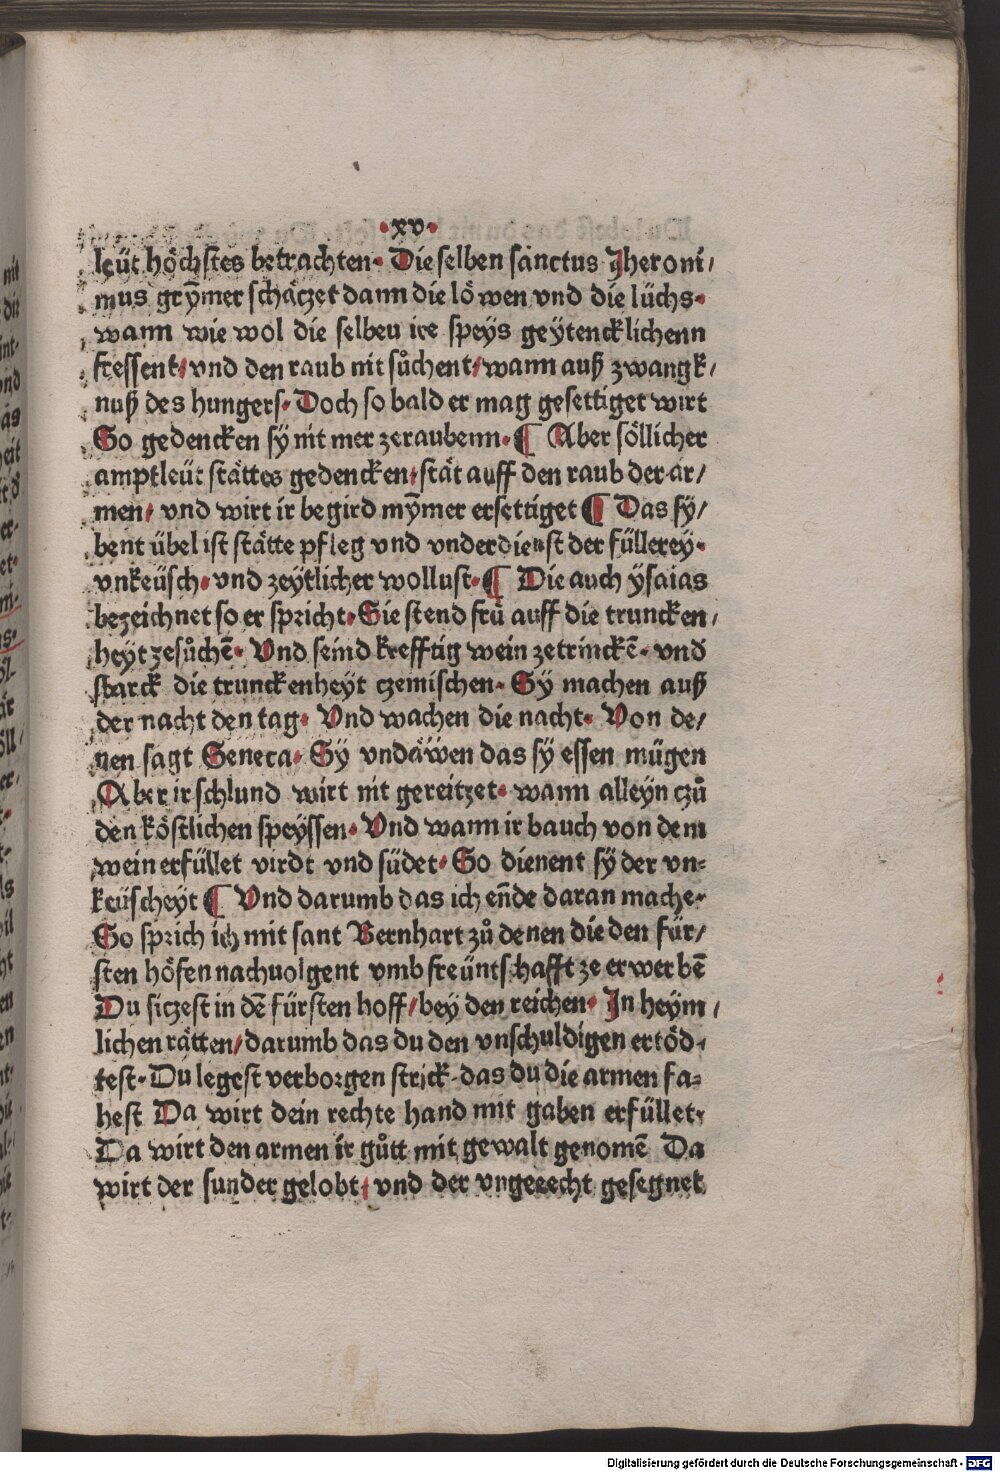 ·xv·
leüt höchstes betrachten· Die selben sanctus Jheroni/
mus gry̅mer schäczet dann die löwen vnd die lüchs·
wann wie wol die selbeu ire speys geytencklichenn
fressent/ vnd den raub nit sůchent/ wann auß zwangk/
nuß des hungers· Doch so bald er mag gesettiget wirt
So gedencken sÿ nit mer zeraubenn· ¶ Aber söllicher
amptleüt stättes gedencken/ stät auff den raub der ar/
men/ vnd wirt ir begird ny̅mer ersettiget ¶ Das sÿ/
bent übel ist stätte pfleg vnd vnderdienst der füllerey·
vnkeüsch· vnd zeytlicher wollust· ¶ Die auch ysaias
bezeichnet so er spricht· Sie stend frü auff die truncken/
heyt zesůchē· Vnd seind krefftig wein zetrinckē· vnd
starck die trunckenheyt czemischen· Sy machen auß
der nacht den tag· Vnd wachen die nacht· Von de/
nen sagt Seneca· Sÿ vndäwen das sÿ essen mügen
Aber ir schlund wirt nit gereitzet· wann alleyn czů
den köstlichen speyssen· Vnd wann ir bauch von dem
wein erfüllet virdt vnd südet· So dienent sÿ der vn=
keüscheyt ¶ Vnd darumb das ich en̄de daran mache·
So sprich ich mit sant Bernhart zů denen die den für/
sten höfen nachuolgent vmb freüntschafft ze erwerbē
Du siczest in dē fürsten hoff/ bey den reichen· In heym/
lichen rätten/ darumb das du den vnschuldigen ertöd·
test· Du legest verborgen strick· das du die armen fa=
hest Da wirt dein rechte hand mit gaben erfüllet·
Da wirt den armen ir gůtt mit gewalt genomē Da
wirt der sunder gelobt/ vnd der vngerecht gesegnet
Digitalisierung gefördert durch die Deutsche Forschungsgemeinschaft - DFG